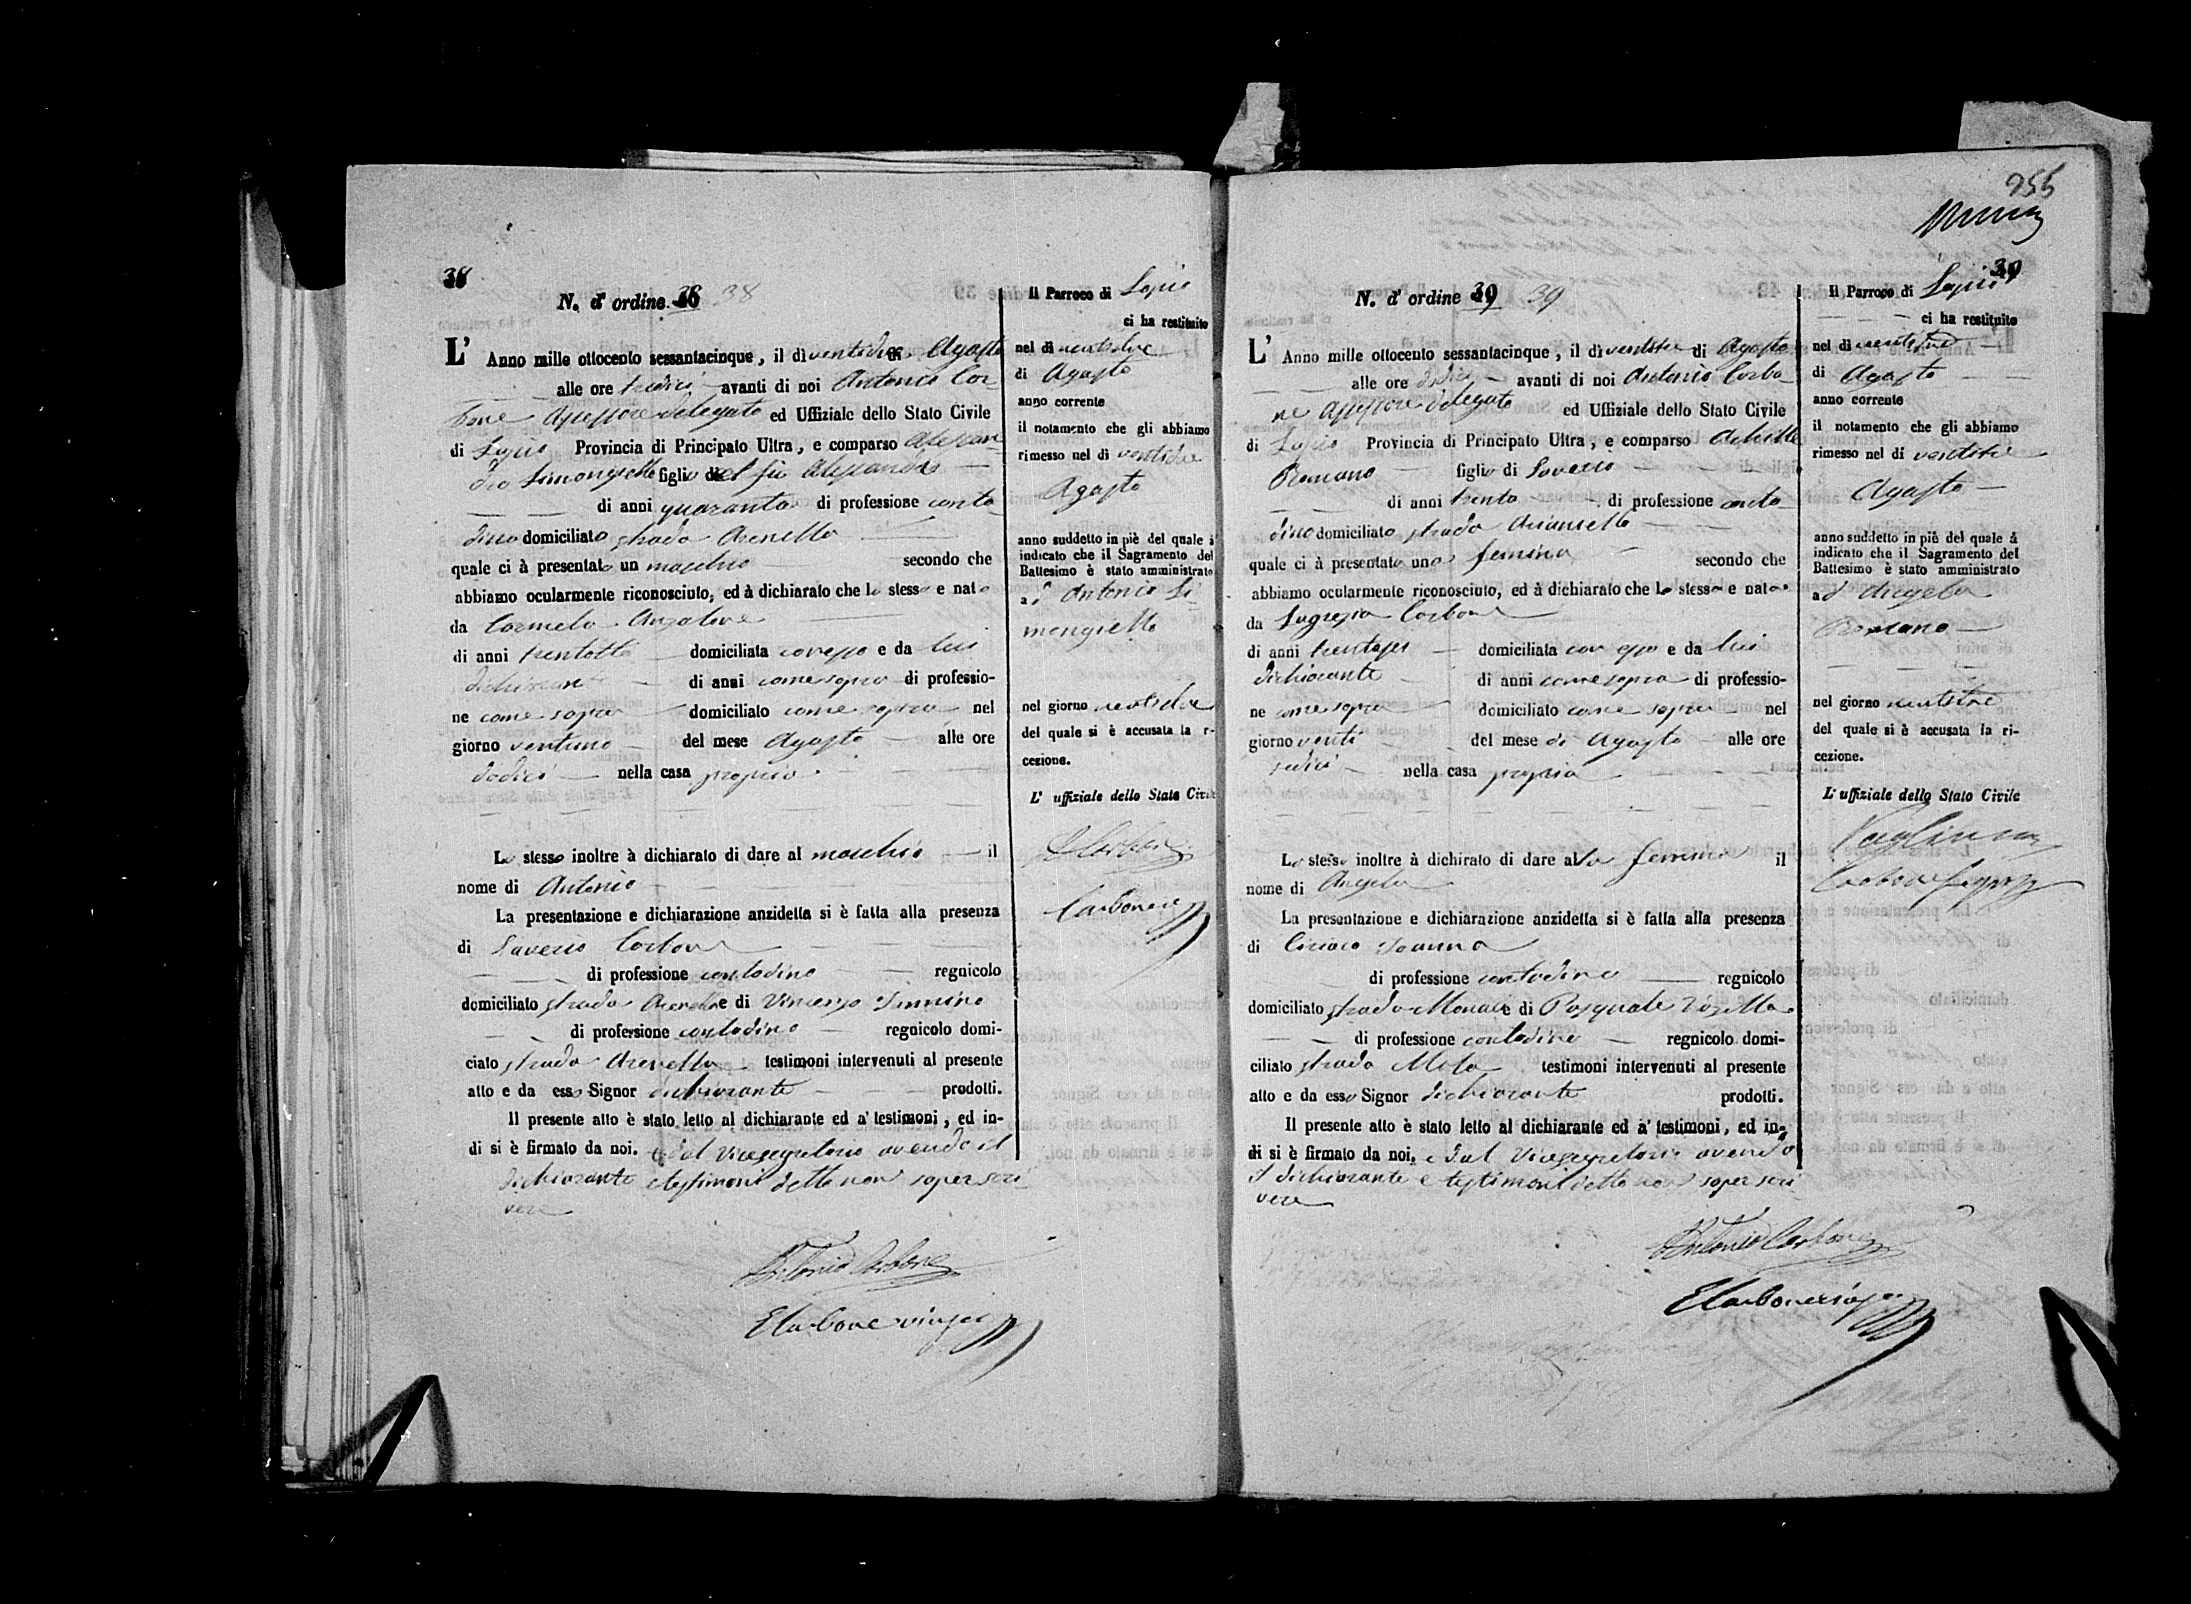 38
N. d' ordine 38 38
L' Anno mille ottocento sessantacinque, il dì ventidue Agosto
alle ore tredici avanti di noi Antonio Car
bone Assessore delegato ed Uffiziale dello Stato Civile
di Lapio Provincia di Principato Ultra, e comparso Alessan
dro Simongiello figlio del fu Alessandro
di anni quaranta di professione conta
dino domiciliato strada Arenella
quale ci à presentato un maschio secondo che
abbiamo ocularmente riconosciuto, ed à dichiarato che lo stesso e nato
da Carmela Anzalone
di anni trentotto domiciliata con esso e da lui
dichiarante di anni come sopra di professio-
ne come sopra domiciliato come sopra nel
giorno ventuno del mese Agosto alle ore
dodici nella casa propria
Lo stesso inoltre à dichiarato di dare al maschio il
nome di Antonio
La presentazione e dichiarazione anzidetta si è fatta alla presenza
di Saverio Carbone
di professione contadino regnicolo
domiciliato strada Arenella e di Vincenzo Iannino
di professione contadino regnicolo domi-
ciato strada Arenella testimoni intervenuti al presente
atto e da esso Signor dichiarante prodotti.
Il presente atto è stato letto al dichiarante ed a' testimoni, ed in-
di si è firmato da noi. e dal Vicesegretario avendo il
dichiarante e testimoni detto non saper scri
vere
Antonio Carbone
E Carbone
Il Parroco di Lapio
ci ha restituito
nel dì ventidue
di Agosto
anno corrente
il notamento che gli abbiamo
rimesso nel dì ventidue
Agosto
anno suddetto in piè del quale à
indicato che il Sagramento del
Battesimo è stato amministrato
ad Antonio Si
mongiello
nel giorno ventidue
del quale si è accusata la r-
cezione.
L' uffiziale dello Stato Civile
Carbone
255
39
N. d' ordine 39 39
L' Anno mille ottocento sessantacinque, il dì ventitre di Agosto
alle ore dodici avanti di noi Antonio Carbo
ne Assessore delegato ed Uffiziale dello Stato Civile
di Lapio Provincia di Principato Ultra, e comparso Achille
Romano figlio di Saverio
di anni trenta di professione conta
dino domiciliato strada Arianiello
quale ci à presentato una femina secondo che
abbiamo ocularmente riconosciuto, ed à dichiarato che la stessa e nata
da Lugrezia Carbone
di anni trentasei domiciliata con esso e da lui
dichiarante di anni come sopra di professio-
ne come sopra domiciliato come sopra nel
giorno venti del mese di Agosto alle ore
sedici nella casa propria
Lo stesso inoltre à dichirato di dare alla femina il
nome di Angela
La presentazione e dichiarazione anzidetta si è fatta alla presenza
di Ciriaco
di professione contadino regnicolo
domiciliato strada e di Pasquale
di professione contadino regnicolo domi-
ciliato strada testimoni intervenuti al presente
atto e da esso Signor dichiarante prodotti.
Il presente atto è stato letto al dichiarante ed a' testimoni, ed in-
di si è firmato da noi, e dal Vicesegretario avendo
il dichiarante e testimoni detto non saper scri
vere
Antonio Carbone
E Carbone
Il Parroco di Lapio
ci ha restituito
nel dì ventitre
di Agosto
anno corrente
il notamento che gli abbiamo
rimesso nel dì ventitre
Agosto
anno suddetto in piè del quale à
indicato che il Sagramento del
Battesimo è stato amministrato
ad Angela
Romano
nel giorno ventitre
del quale si è accusata la ri-
cezione.
L' uffiziale dello Stato Civile